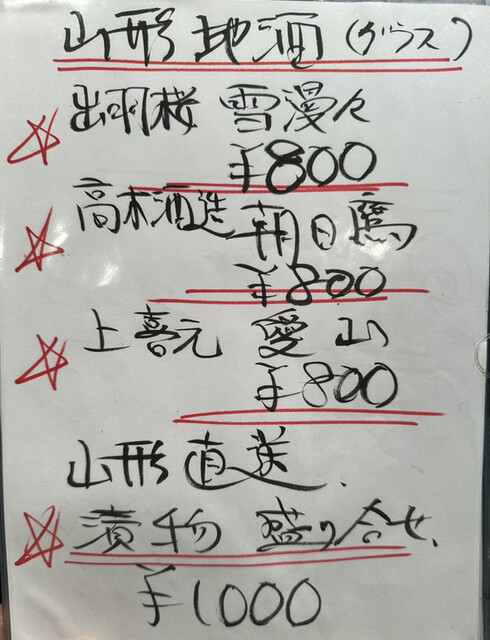 山形地酒(グラス)
出羽桜 雪漫々
¥800
高木酒造 朝日鷹
¥800
上喜元 愛山
¥800
山形直送
漬物 盛り合せ
¥1000